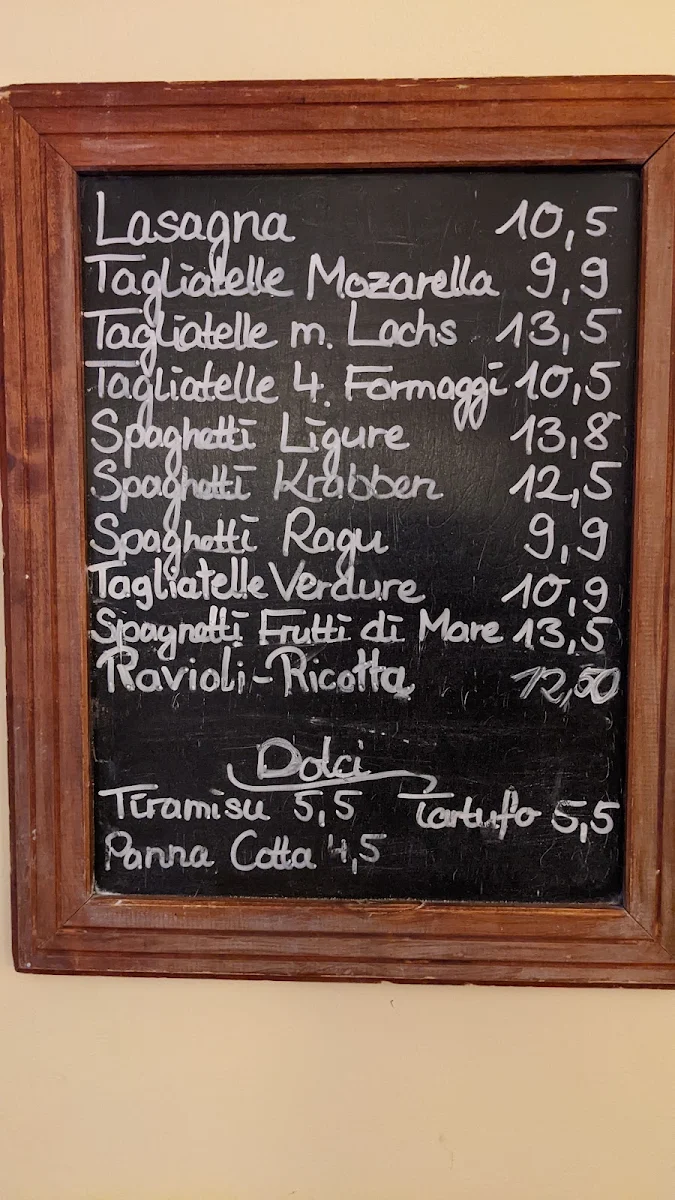 Lasagna 10,5
Tagliatelle Mozarella 9,9
Tagliatelle m. Lachs 13,5
Tagliatelle 4. Formaggi 10,5
Spaghetti Ligure 13,8
Spaghetti Krabben 12,5
Spaghetti Ragu 9,9
Tagliatelle Verdure 10,9
Spaghetti Frutti di Mare 13,5
Ravioli-Ricotta 12,50
Dolci
Tiramisu 5,5 Tartufo 5,5
Panna Cotta 4,5